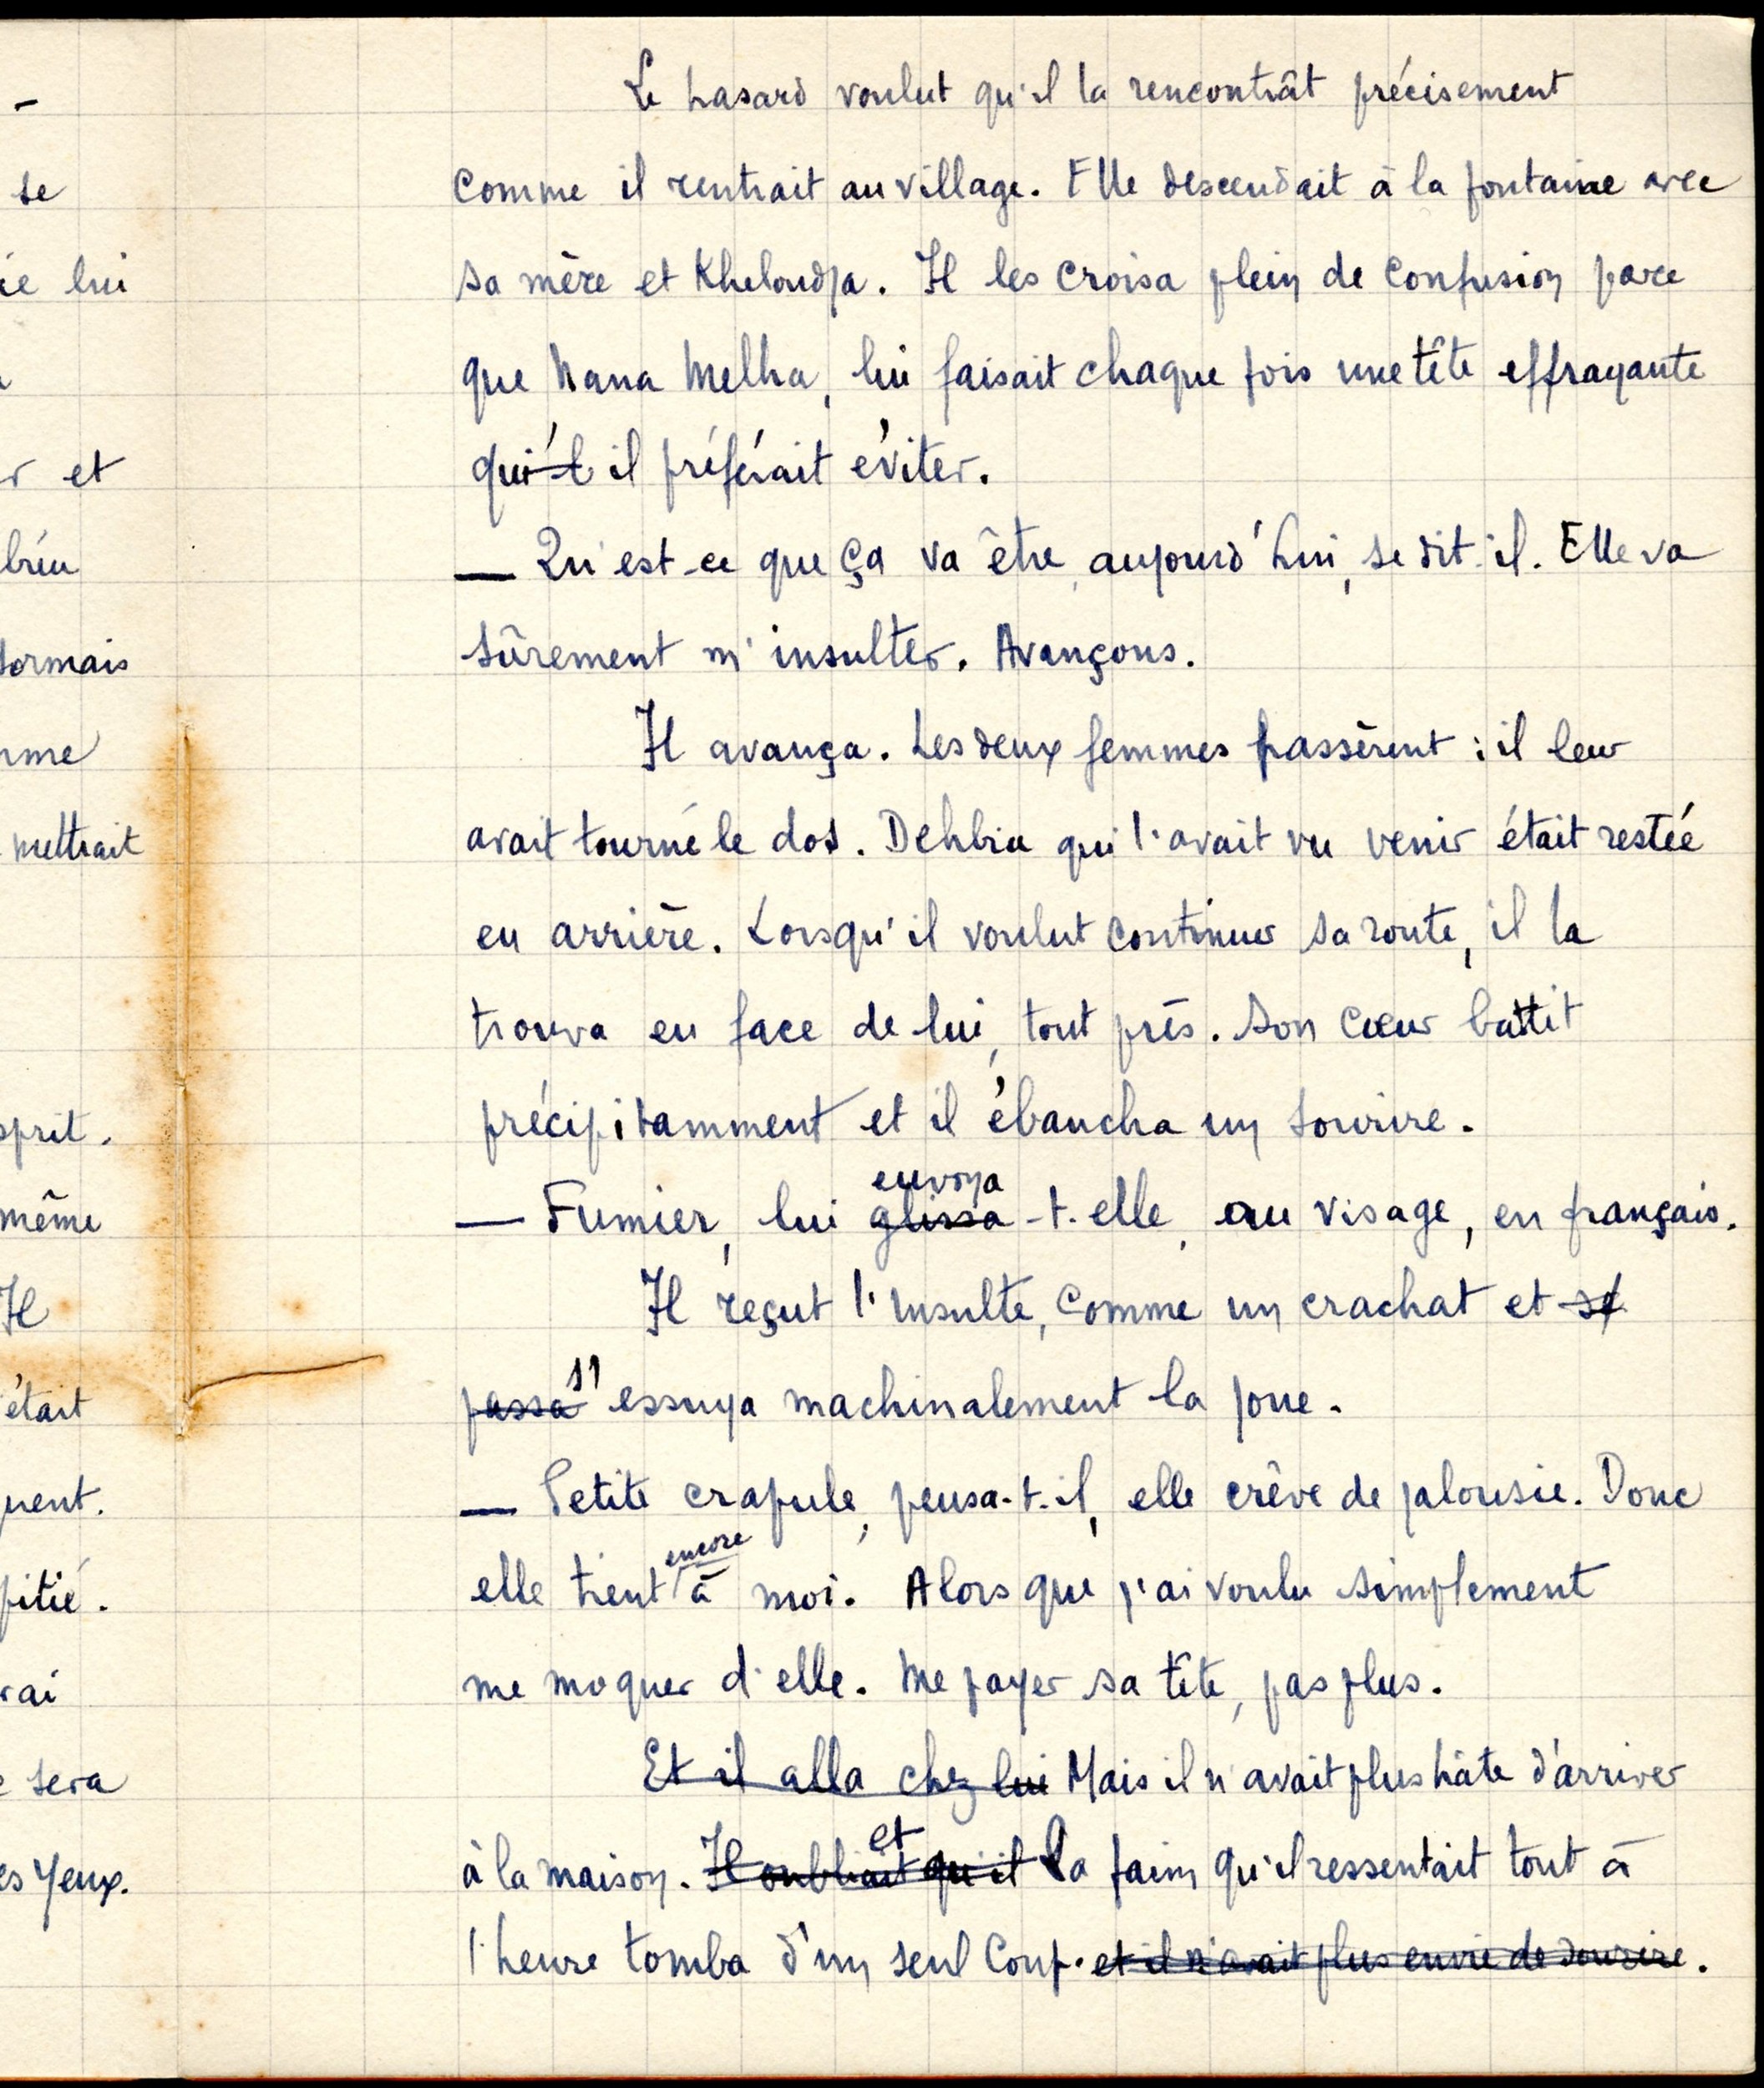 -
se
ie lui
r et
bria
sormais
mme
mettrait
sprit.
même
Il
était
quent.
pitié.
rai
e sera
es yeux.
Le hasard voulut qu'il la rencontrât précisement
comme il rentrait au village. Elle descendait à la fontaine avec
sa mère et Kheloudja. Il les croisa plein de confusion parce
que Nana Melha, lui faisait chaque fois une tête effrayante
qui'l il préférait éviter.
— Qu'est-ce que ça va être, aujourd'hui, se dit-il. Elle va
sûrement m'insulter. Avançons.
Il avança. Les deux femmes passèrent : il leur
avait tourné le dos. Dehbia qui l'avait vu venir était restée
en arrière. Lorsqu'il voulut continuer sa route, il la
trouva en face de lui, tout près. Son cœur battit
précipitamment et il ébaucha un sourire.
envoya
— Fumier, lui glissa -t-elle, au visage, en français.
Il reçut l'insulte, comme un crachat et se
passa s' essuya machinalement la joue.
— Petite crapule, pensa-t-il, elle crève de jalousie. Donc
encore
elle tient à moi. Alors que j'ai voulu simplement
me moquer d'elle. Me payer sa tête, pas plus.
Et il alla chez lui Mais il n'avait plus hâte d'arriver
et
à la maison. Il oubliait qu'il la faim qu'il ressentait tout à
l'heure tomba d'un seul coup. et il n'avait plus envie de sourire.